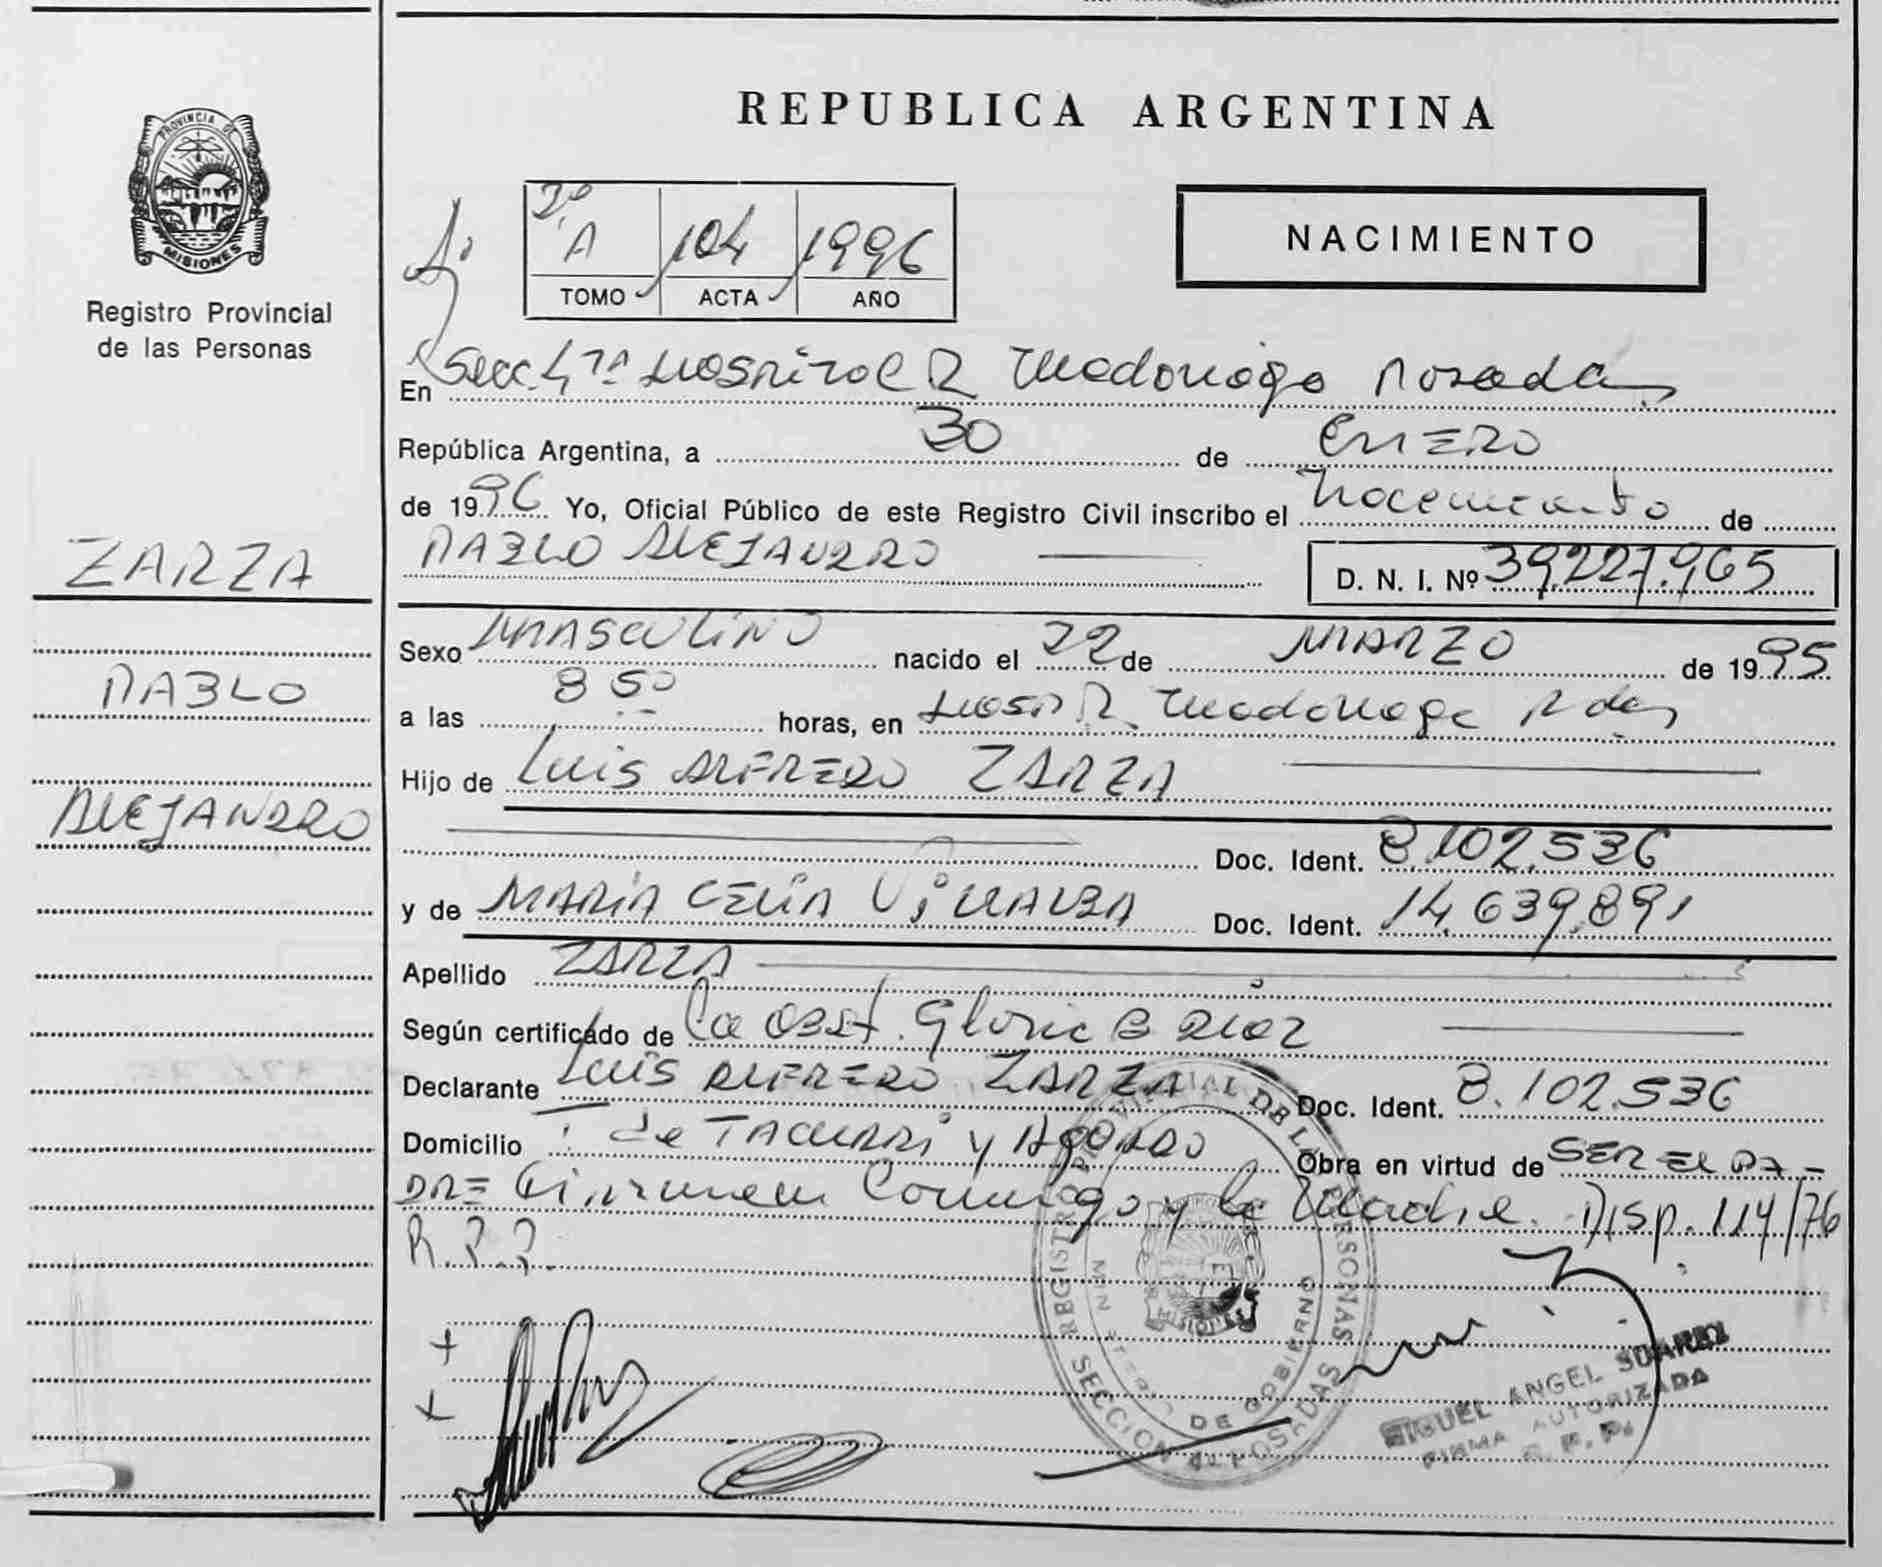 REPUBLICA ARGENTINA
PROVINCIA DE
MISIONES
Registro Provincial
de las Personas
2º
A 104 1996
TOMO ACTA AÑO
NACIMIENTO
En Secc. 4ta Hospital R Madariaga Posadas
República Argentina, a 30 de ENERO
de 1996 Yo, Oficial Público de este Registro Civil inscribo el Nacimiento de
PABLO ALEJANDRO D. N. I. Nº 39.227.965
ZARZA
PABLO
ALEJANDRO
Sexo MASCULINO nacido el 22 de MARZO de 1995
a las 8 50 horas, en Hosp R. Madariaga Pdas
Hijo de Luis ALFREDO ZARZA
Doc. Ident. 8.102.536
y de MARIA CELIA VILLALBA Doc. Ident. 14.639.891
Apellido ZARZA
Según certificado de la OBST. Gloria B Diaz
Declarante Luis ALFREDO ZARZA Doc. Ident. 8.102.536
Domicilio T. de TACUARI y Obra en virtud de SER EL PA-
DRE Firman Conmigo y la Madre. Disp. 114/76
R.P.P.
REGISTRO PROVINCIAL DE LAS PERSONAS
MINISTERIO DE GOBIERNO
MISIONES
SECCION 4ta POSADAS
MIGUEL ANGEL SUAREZ
FIRMA AUTORIZADA
R. P. P.